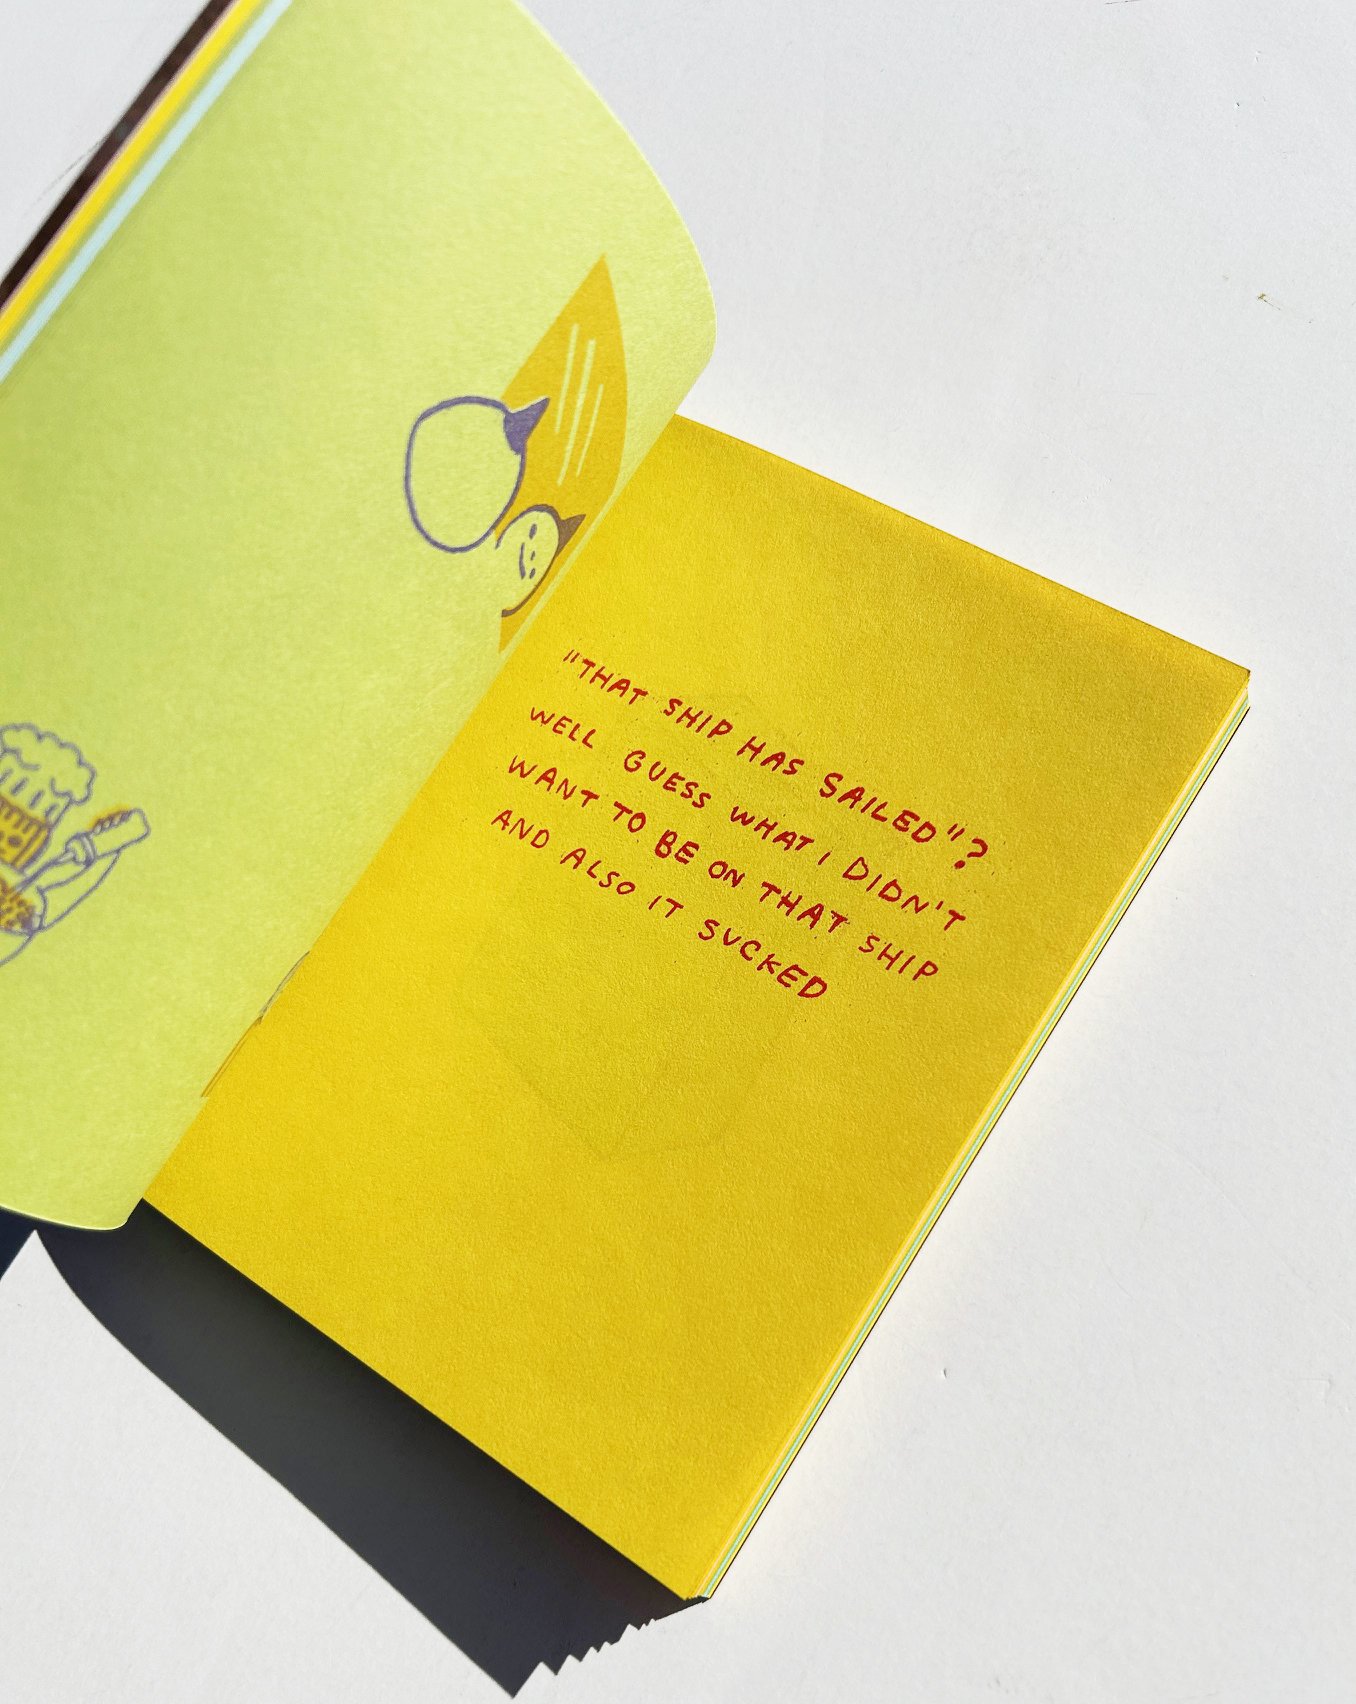 "THAT SHIP HAS SAILED"?
WELL GUESS WHAT I DIDN'T
WANT TO BE ON THAT SHIP
AND ALSO IT SUCKED